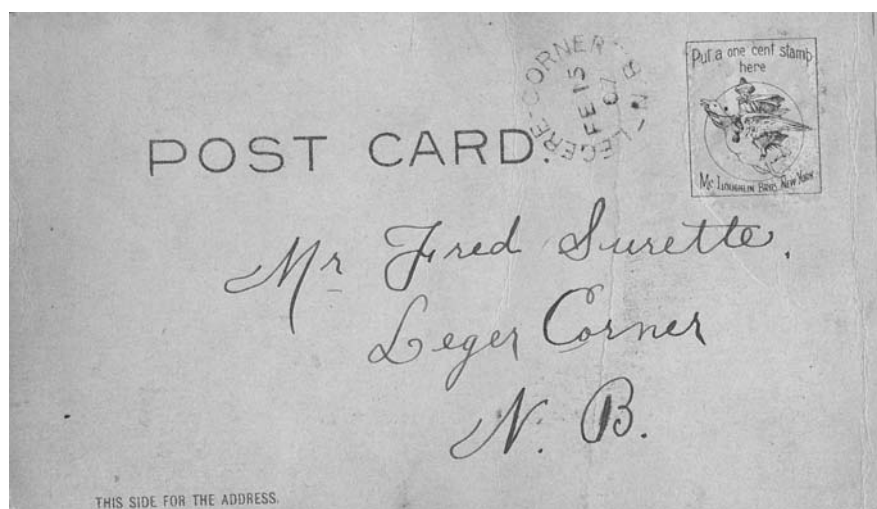 LEGERE-CORNER
FE 15
07
N.B
Put a one cent stamp
here
Mc Loughlin Bros New York
POST CARD.
Mr Fred Surette.
Leger Corner
N. B.
THIS SIDE FOR THE ADDRESS.